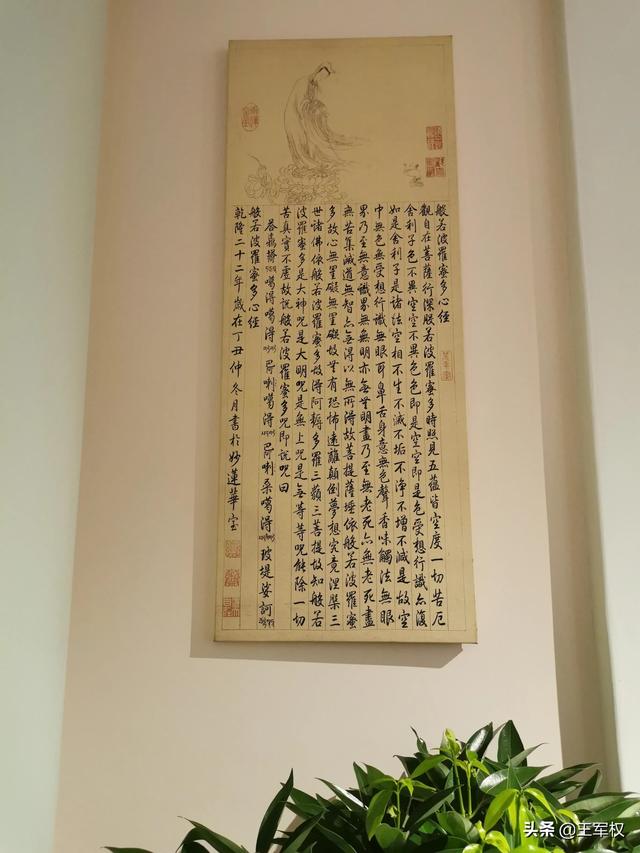 般若波羅蜜多心經
觀自在菩薩行深般若波羅蜜多時照見五蘊皆空度一切苦厄
舍利子色不異空空不異色色即是空空即是色受想行識亦復
如是舍利子是諸法空相不生不滅不垢不淨不增不減是故空
中無色無受想行識無眼耳鼻舌身意無色聲香味觸法無眼
界乃至無意識界無無明亦無無明盡乃至無老死亦無老死盡
無苦集滅道無智亦無得以無所得故菩提薩埵依般若波羅蜜
多故心無罣礙無罣礙故無有恐怖遠離顛倒夢想究竟涅槃三
世諸佛依般若波羅蜜多故得阿耨多羅三藐三菩提故知般若
波羅蜜多是大神咒是大明咒是無上咒是無等等咒能除一切
苦真實不虛故說般若波羅蜜多咒即說咒曰
噶得噶得 喇噶得 喇桑噶得 玻堤娑訶
般若波羅蜜多心經
乾隆二十二年歲在丁丑仲冬月書於妙蓮華室
头条 @王军权